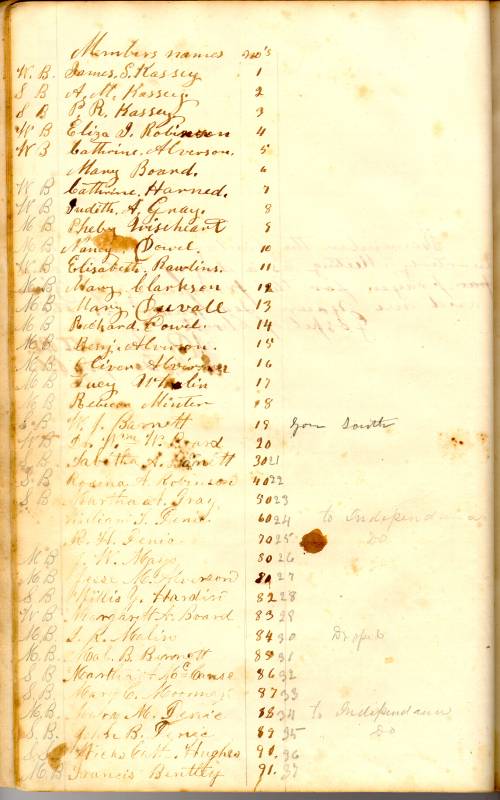 Members names no's
W. B. James. S. Kassey 1
S B A. M. Kassey. 2
S B P. R. Kassey 3
W B Eliza J. Robinson 4
W B Cathrine. Alverson. 5
Mary Board. 6
W B Cathrine. Harned. 7
W B Judith. A. Gray. 8
M B Pheby Wiseheart 9
M B Nancy Powel. 10
W. B Elisabeth. Rawlins. 11
M. B Mary Clarkson 12
M B Mary Duvall 13
M B Richard. Powel. 14
M B Benj. Alverson. 15
M B Oliver Alverson 16
M B Lucy Whalin 17
M B Rebecca Minter 18
W. J. Barnett 19 Gon South
W B Dr. Wm. P. Board 20
Tabitha A. Barnett 30 21
S B Rosena A. Robinson 40 22
S B Martha A. Gray 50 23
William T. 60 24 to
R. H. 70 25 Do
M B J. W. Mays 80 26
M B Jesse M. Alverson 81 27
S B Willis Y. Hardin 82 28
W B Margarett A. Board 83 29
M. B. S. R. Malin 84 30
M. B. Mal. B. Barnett 85 31
S B. Martha 86 32
S B. Mary C. 87 33
M. B. Mary M. 88 34 to
S. B. John B. 89 35 Do
Hughes 90. 36
M. B Francis Bentley 91. 37